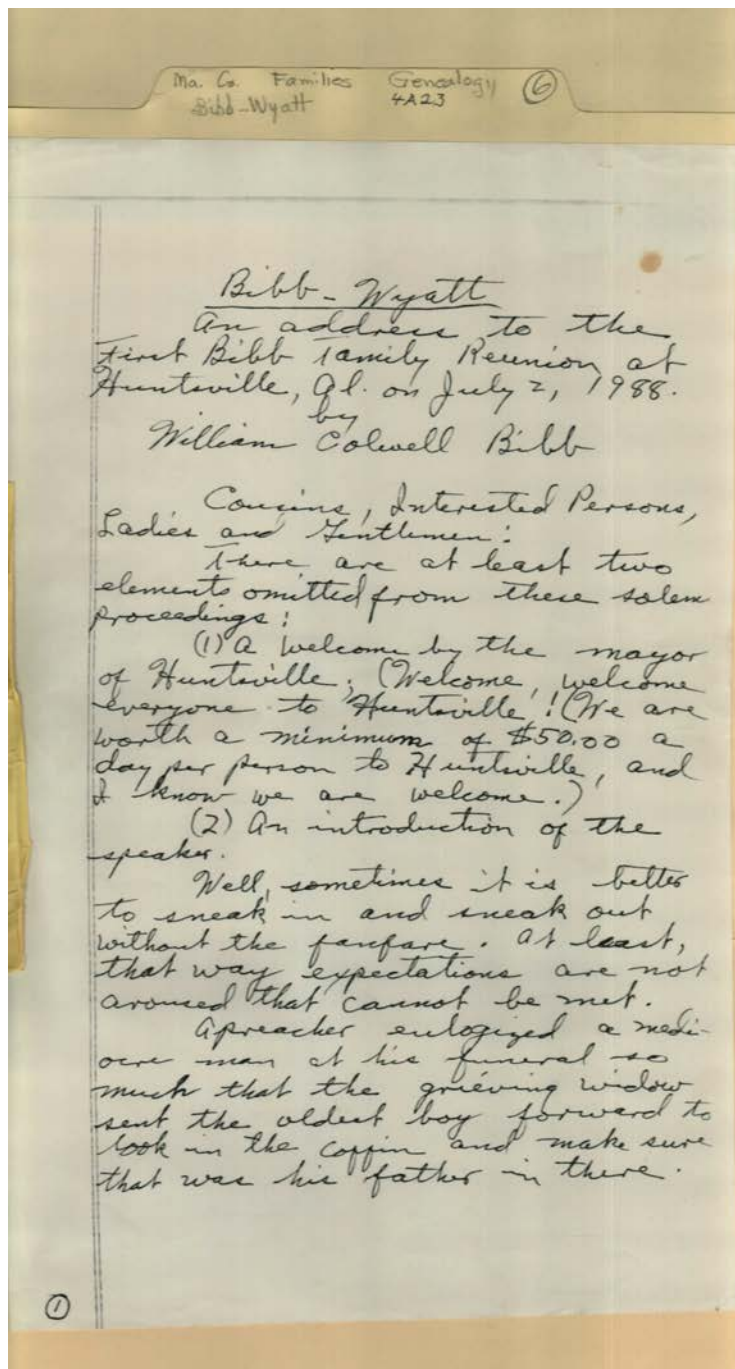 Ma. Co. Families Genealogy 6
Bibb-Wyatt 4A23
Bibb - Wyatt
An address to the
First Bibb Family Reunion at
Huntsville, Al. on July 2, 1988.
by
William Colwell Bibb
Cousins, Interested Persons,
Ladies and Gentlemen:
There are at least two
elements omitted from these solem
proceedings:
(1) A welcome by the mayor
of Huntsville; (Welcome, welcome
everyone to Huntsville! (We are
worth a minimum of $50.00 a
day per person to Huntsville, and
I know we are welcome.)
(2) An introduction of the
speaker.
Well, sometimes it is better
to sneak in and sneak out
without the fanfare. At least,
that way expectations are not
aroused that cannot be met.
A preacher eulogized a medi-
ocre man at his funeral so
much that the grieving widow
sent the oldest boy forward to
look in the coffin and make sure
that was his father in there.
1